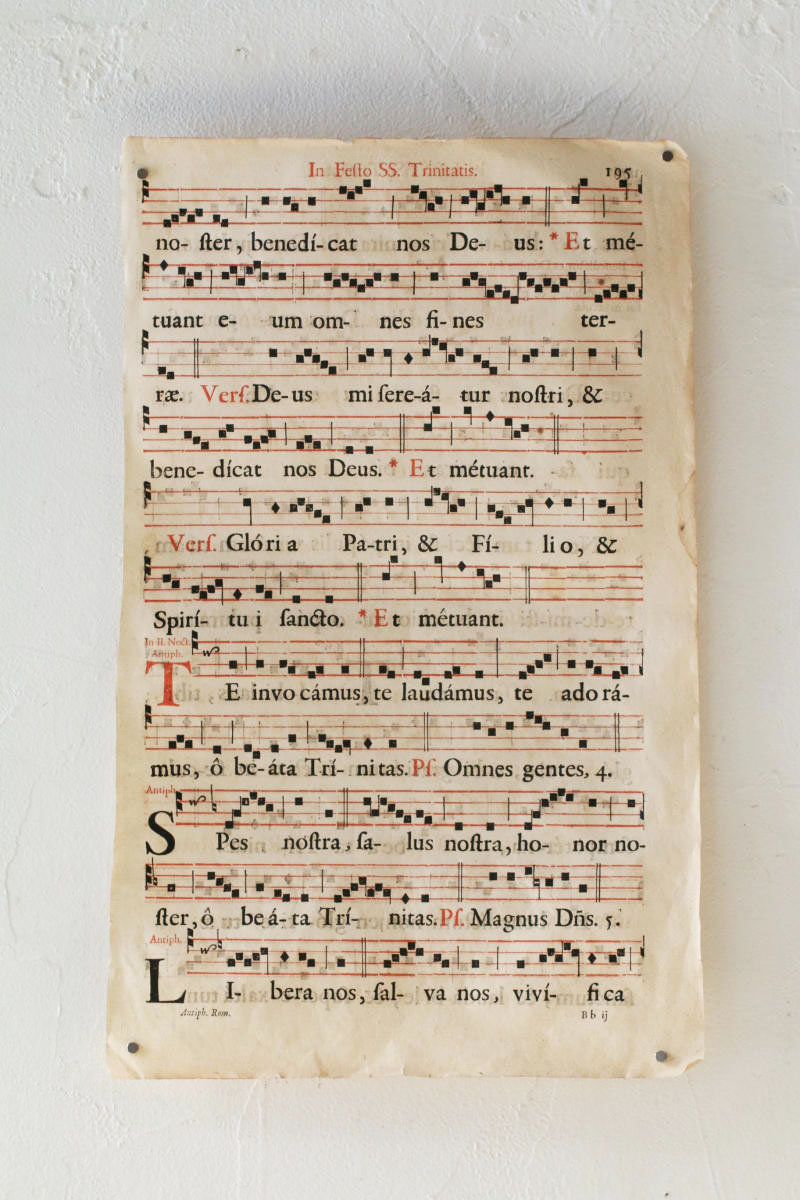 In Feſto SS. Trinitatis. 195
no- ſter, benedí-cat nos De- us: * Et mé-
tuant e- um om- nes fi- nes ter-
ræ. Verſ. De-us miſere-á- tur noſtri, &
bene- dícat nos Deus. * Et métuant.
Verſ. Glória Pa-tri, & Fí- lio, &
Spirí- tui ſancto. * Et métuant.
In II. Noct.
Antiph.
TE invocámus, te laudámus, te adorá-
mus, ô be-áta Trí- nitas. Pſ. Omnes gentes, 4.
Antiph.
SPes noſtra, ſa- lus noſtra, ho- nor no-
ſter, ô beá-ta Trí- nitas. Pſ. Magnus Dñs. 5.
Antiph.
LI- bera nos, ſal- va nos, viví- fica
Antiph. Rom. Bb ij